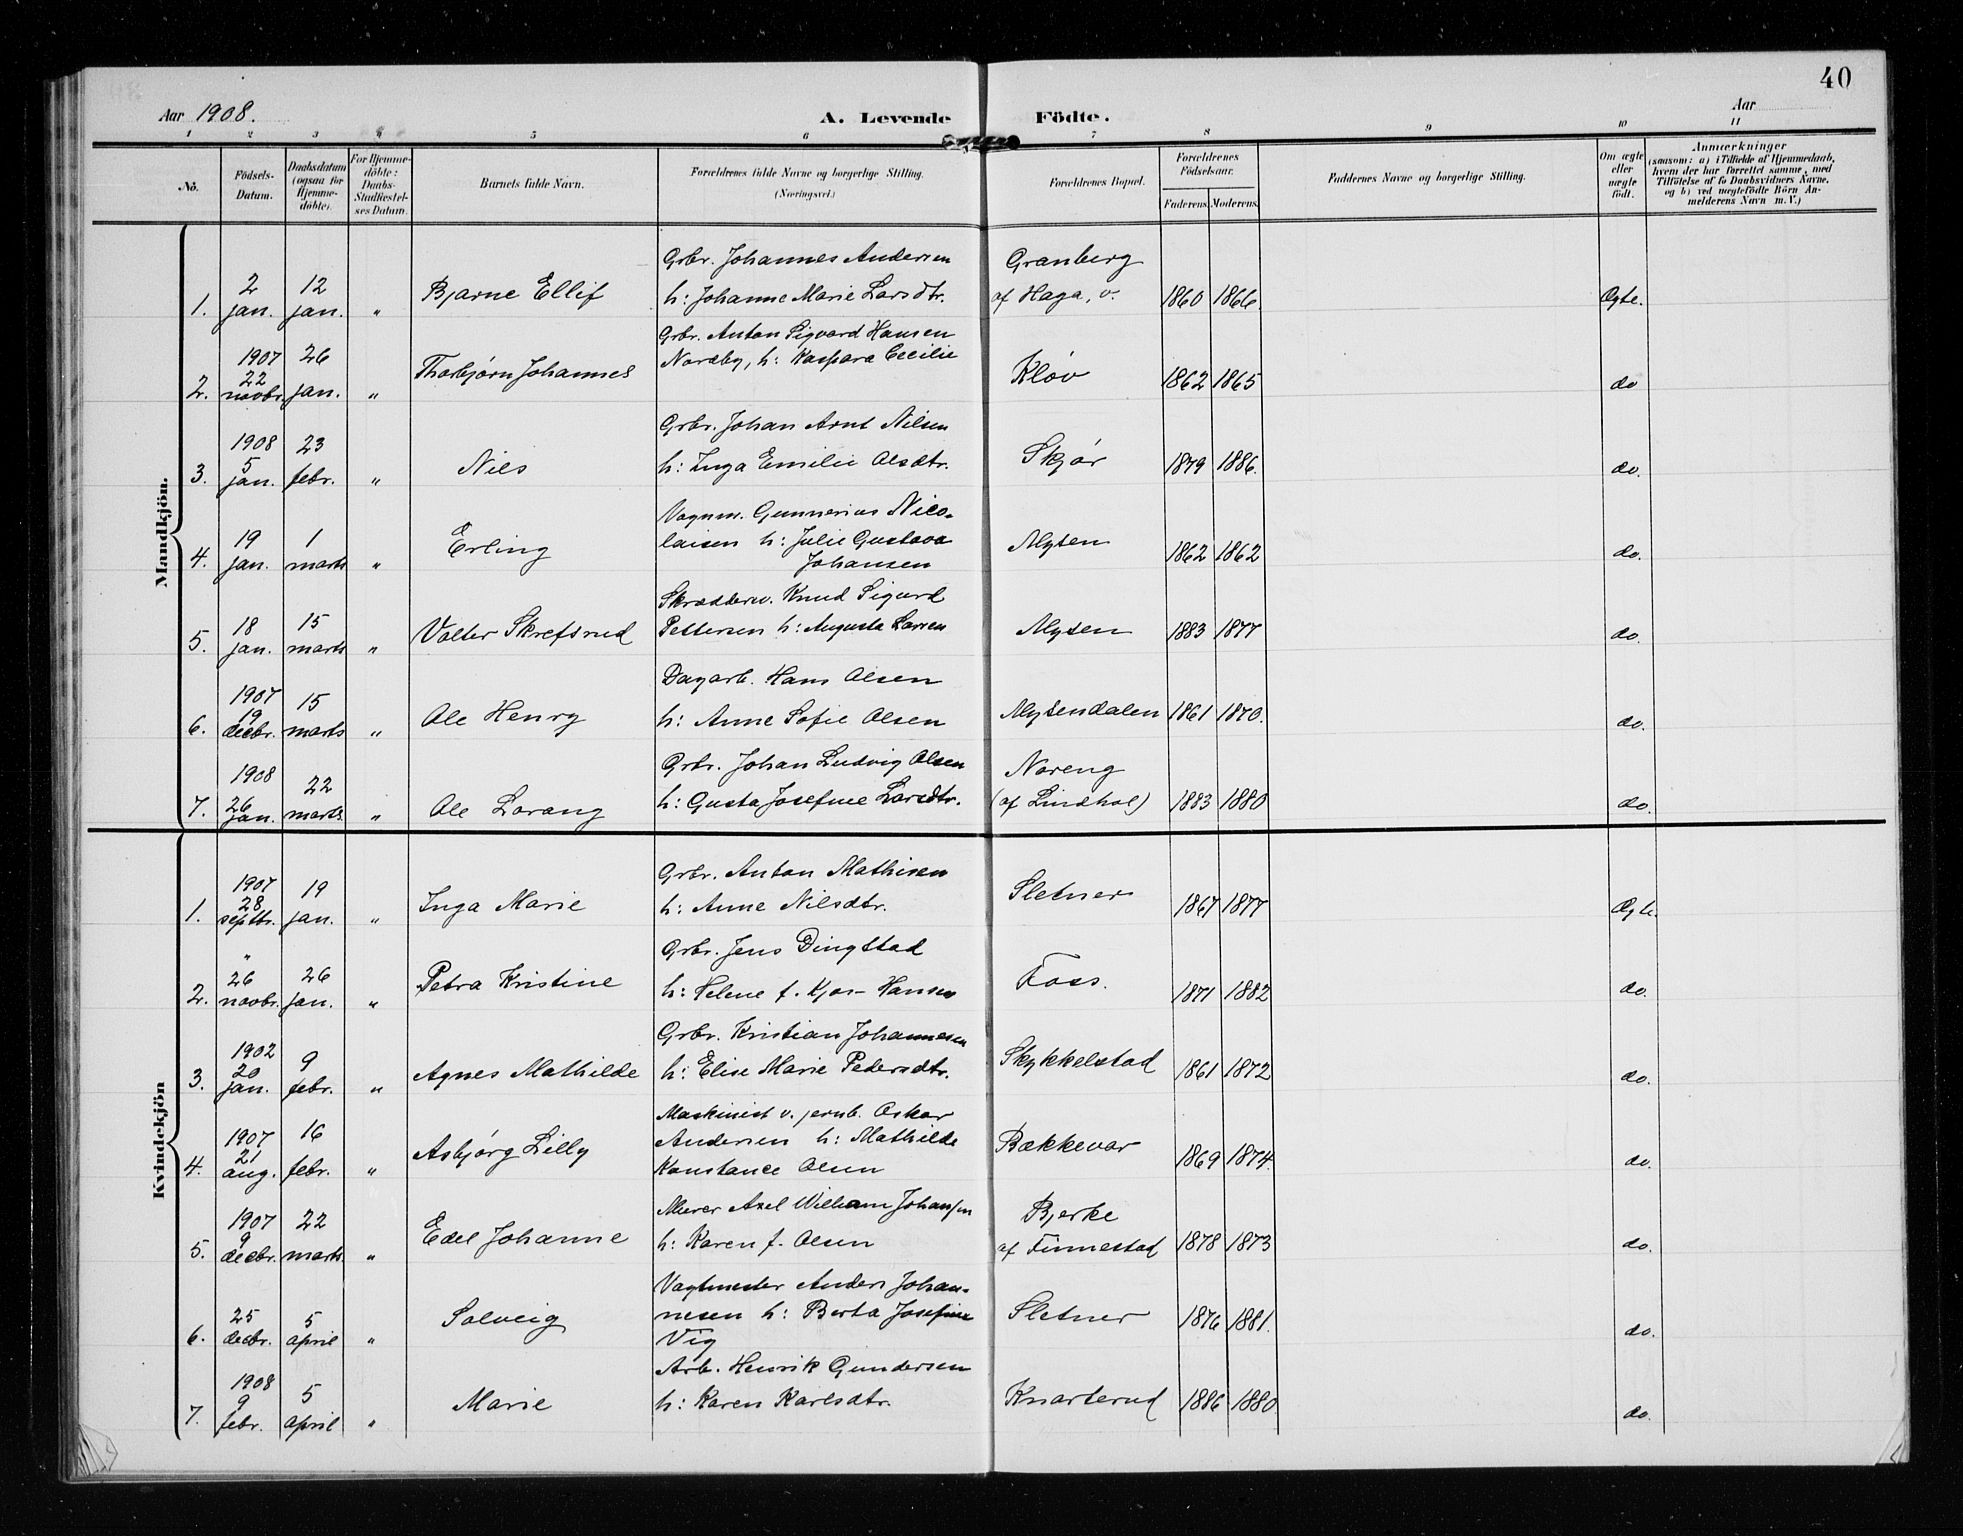 40
Aar 1908.
A. Levende Födte.
Aar
1 2 3 4 5 6 7 8 9 10 11
No.
Födsels-Datum.
Daabsdatum (ogsaa for Hjemme-döbte).
For Hjemme-döbte: Daabs-Stadfæstel-ses Datum.
Barnets fulde Navn.
Forældrenes fulde Navne og borgerlige Stilling.
(Næringsvei.)
Forældrenes Bopæl.
Forældrenes Födselsaar.
Faderens. Moderens.
Faddernes Navne og borgerlige Stilling.
Om ægte eller uægte födt.
Anmærkninger
(saasom: a) i Tilfælde af Hjemmedaab,
hvem der har forrettet samme, med
Tilföielse af to Daabsvidners Navne.
og b) ved uægtefödte Börn An-
melderens Navn m. V.)
Mandkjön.
1. 2 jan. 12 jan. " Bjarne Ellif Grbr. Johannes Andersen h: Johanne Marie Larsdtr. Granberg af Haga, v. 1860 1866. Ægte.
2. 1907 22 novbr. 26 jan. " Thorbjørn Johannes Grbr. Anton Sigvard Hansen Nordby, h: Kaspara Cecilie Kløv 1862 1865 do
3. 1908 5 jan. 23 febr. " Nils Grbr. Johan Arnt Nilsen h: Inga Emilie Olsdtr. Skjør 1879 1886. do.
4. 19 jan. 1 marts " Erling Vognm. Gunnerius Nico-
laisen h: Julie Gustava
Johansen Mysen 1862 1862 do.
5. 18 jan. 15 marts " Valter Skrefsrud Skrædderm. Knud Sigurd
Pettersen h: Augusta Larsen Mysen 1883 1877 do.
6. 1907 19 decbr. 15 marts " Ole Henry Dagarb. Hans Olsen
h: Anne Sofie Olsen Mysendalen 1861 1870. do.
7. 1908 26 jan. 22 marts. " Ole Lorang Grbr. Johan Ludvig Olsen
h: Gusta Josefine Larsdtr. Noreng (af Lindhol) 1883 1880 do.
Kvindekjön
1. 1907 28 septbr. 19 jan. " Inga Marie Grbr. Anton Mathisen
h: Anne Nilsdtr. Sletner 1867 1877 Ægte.
2. " 26 novbr. 26 jan. " Petra Kristine Grbr. Jens Dingstad
h: Helene f. Kjos-Hansen Foss. 1871 1882 do.
3. 1902 20 jan. 9 febr. " Agnes Mathilde Grbr. Kristian Johannesen
h: Elise Marie Pedersdtr. Skykkelstad 1861 1872 do.
4. 1907 21 aug. 16 febr. " Asbjørg Lilly Maskinist v. jernb. Oskar
Andersen h: Mathilde
Konstance Olsen Bækkevar 1869 1874. do.
5. 1907 9 decbr. 22 marts. " Edel Johanne Murer Axel Wilhelm Johansen
h: Karen f. Olsen Bjerke af Finnestad 1878 1873 do.
6. 25 decbr. 5 april " Solveig Vagtmester Anders Johan-
nesen h: Berta Josefine
Vig Sletner 1876 1881. do.
7. 1908 9 febr. 5 april " Marie Arb. Henrik Gundersen
h: Karen Karlsdtr. Knarterud 1886 1880 do.